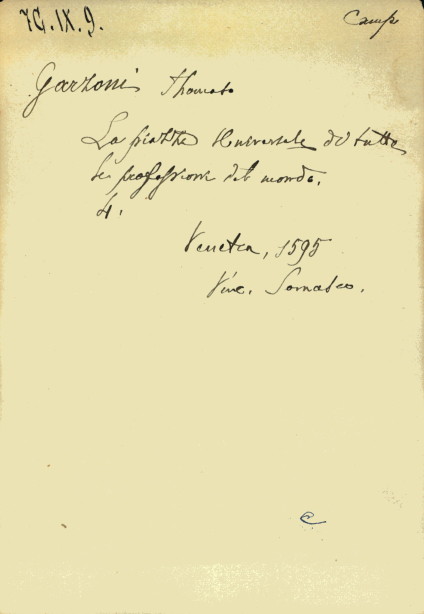 7G.IX.9.
Camp
Garzoni Thomaso
La piazza universale di tutte
le professioni del mondo.
4.
Venetia, 1595
Vinc. Somasco.
C